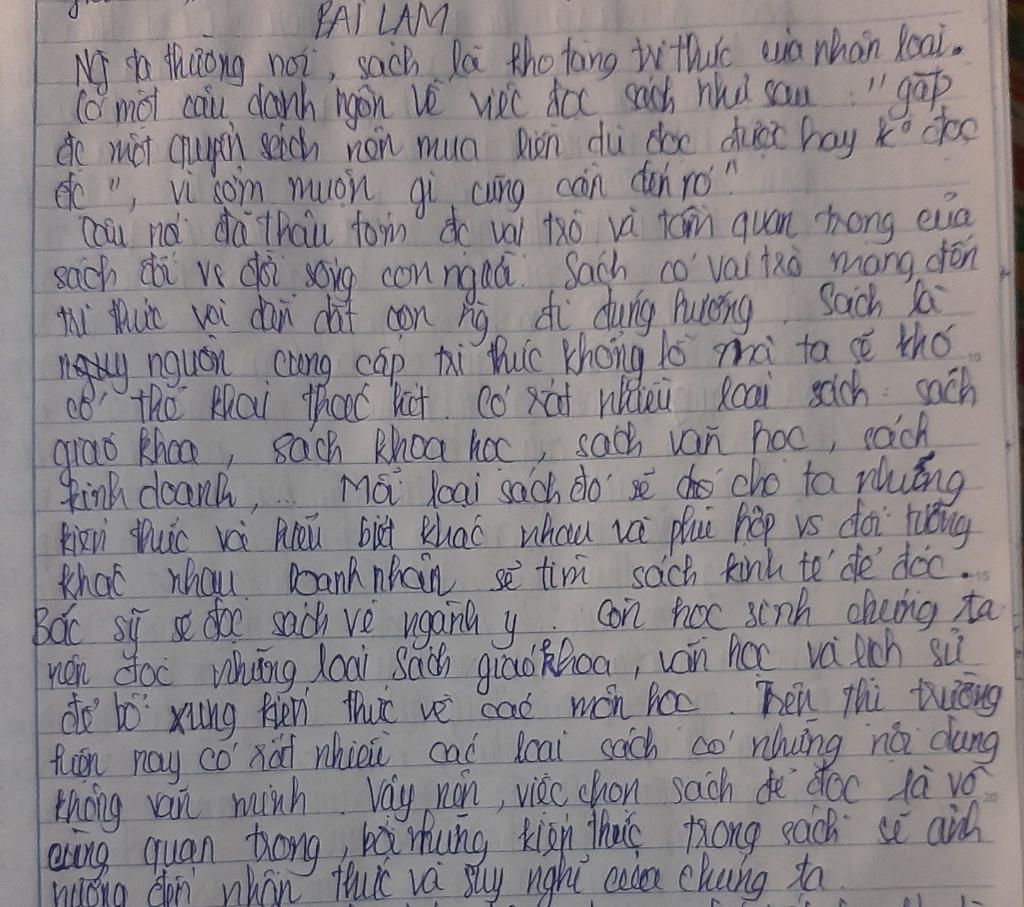 BÀI LÀM
Ng ta thường nói, sách là kho tàng tri thức của nhân loại.
Có một câu danh ngôn về việc đọc sách như sau : "gặp
đc một quyển sách nên mua liền dù đọc được hay k° đọc
đc", vì sớm muộn gì cũng cần đến nó"
Câu nói đã thâu tóm đc vai trò và tầm quan trọng của
sách đối vs đời sống con người. Sách có vai trò mang đến
tri thức với dẫn dắt con ng đi đúng hướng. Sách là
nguy nguồn cung cấp tri thức khổng lồ mà ta sẽ khó
có thể khai thác hết. Có rất nhiều loại sách : sách
giáo khoa, sách khoa học, sách văn học, sách
kinh doanh, ... Mỗi loại sách đó sẽ cho ta những
kiến thức và hiểu biết khác nhau và phù hợp vs đối tượng
khác nhau. Doanh nhân sẽ tìm sách kinh tế để đọc.
Bác sỹ sẽ đọc sách về ngành y. Còn học sinh chúng ta
nên đọc những loại sách giáo khoa, văn học và lịch sử
để bổ xung kiến thức về các môn học. Trên thị trường
hiện nay có rất nhiều các loại sách có những nội dung
không văn minh. Vậy nên, việc chọn sách để đọc là vô
cùng quan trọng, bởi những kiến thức trong sách sẽ ảnh
hưởng đến nhận thức và suy nghĩ của chúng ta.